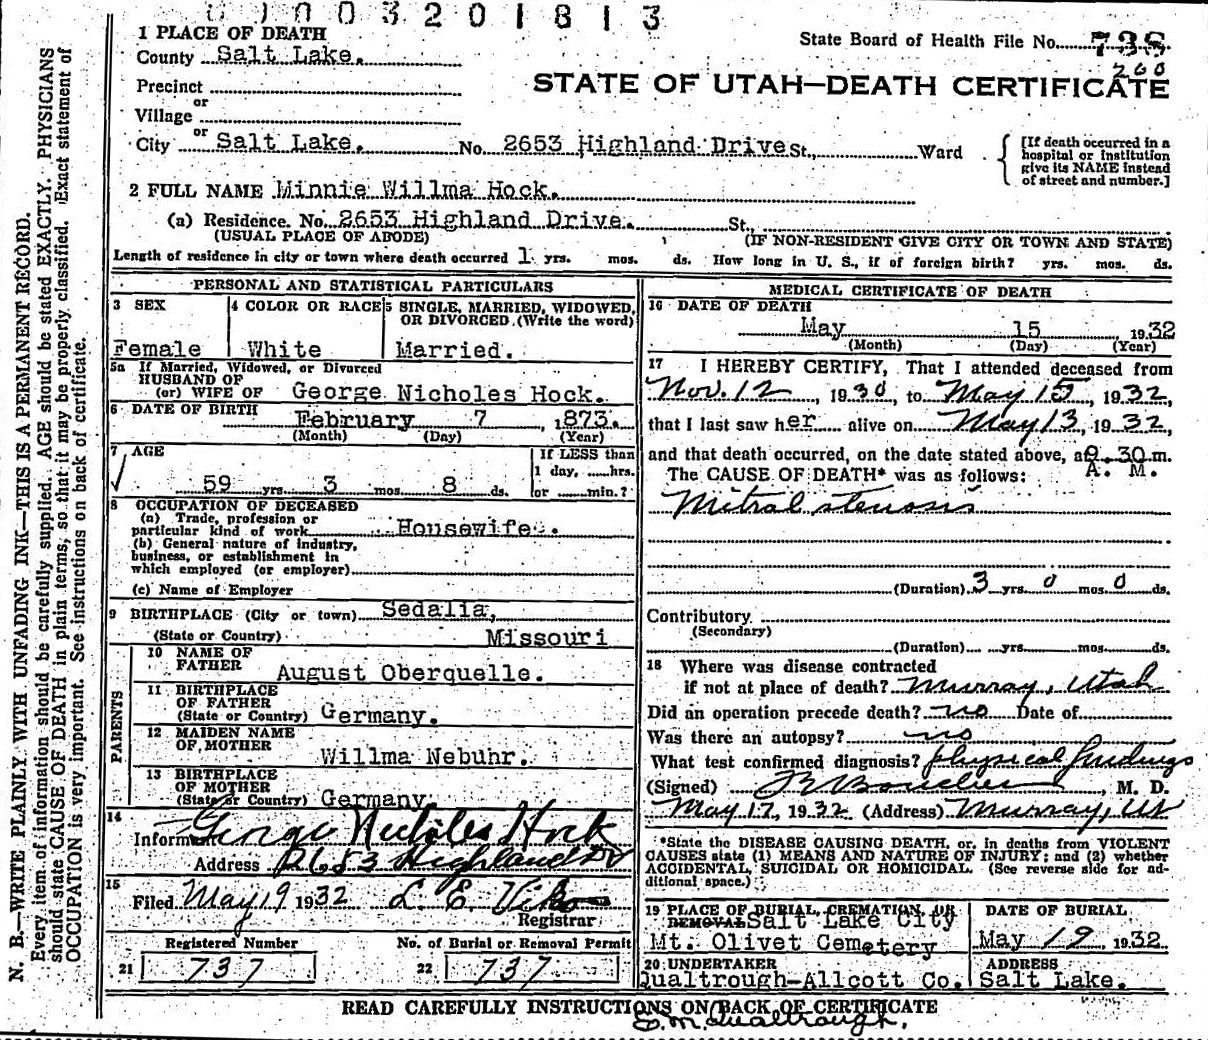 0100320 1813
1 PLACE OF DEATH
State Board of Health File No. 738
200
County Salt Lake.
STATE OF UTAH—DEATH CERTIFICATE
Precinct
or
Village
or
City Salt Lake. No. 2653 Highland Drive St., Ward
[If death occurred in a hospital or institution give its NAME instead of street and number.]
2 FULL NAME Minnie Willma Hock.
(a) Residence. No. 2653 Highland Drive. St.,
(USUAL PLACE OF ABODE) (IF NON-RESIDENT GIVE CITY OR TOWN AND STATE)
Length of residence in city or town where death occurred 1 yrs. mos. ds. How long in U. S., if of foreign birth? yrs. mos. ds.
PERSONAL AND STATISTICAL PARTICULARS
3 SEX
Female
4 COLOR OR RACE
White
5 SINGLE, MARRIED, WIDOWED,
OR DIVORCED. (Write the word)
Married.
5a If Married, Widowed, or Divorced
HUSBAND OF
(or) WIFE OF George Nicholes Hock.
6 DATE OF BIRTH February 7, 1873.
(Month) (Day) (Year)
7 AGE
59 yrs. 3 mos. 8 ds.
If LESS than
1 day, ......hrs.
or ......min.?
8 OCCUPATION OF DECEASED
(a) Trade, profession or
particular kind of work Housewife.
(b) General nature of industry,
business, or establishment in
which employed (or employer)
(c) Name of Employer
9 BIRTHPLACE (City or town) Sedalia,
(State or Country) Missouri
PARENTS
10 NAME OF
FATHER August Oberquelle.
11 BIRTHPLACE
OF FATHER
(State or Country) Germany.
12 MAIDEN NAME
OF MOTHER Willma Nebuhr.
13 BIRTHPLACE
OF MOTHER
(State or Country) Germany.
14
Informant George Nicholes Hock
Address 2653 Highland Dr
15
Filed May 19 1932 L. E. Viko
Registrar
Registered Number
21 737
No. of Burial or Removal Permit
22 737
MEDICAL CERTIFICATE OF DEATH
16 DATE OF DEATH
May 15 1932
(Month) (Day) (Year)
17 I HEREBY CERTIFY, That I attended deceased from
Nov. 12, 1930, to May 15, 1932,
that I last saw her alive on May 13, 1932,
and that death occurred, on the date stated above, at 9.30 m.
A. M.
The CAUSE OF DEATH* was as follows:
Mitral stenosis
(Duration) 3 yrs. 0 mos. 0 ds.
Contributory
(Secondary)
(Duration) yrs. mos. ds.
18 Where was disease contracted
if not at place of death? Murray, Utah
Did an operation precede death? no Date of
Was there an autopsy? no
What test confirmed diagnosis? physical findings
(Signed) , M. D.
May 17, 1932 (Address) Murray, Ut
*State the DISEASE CAUSING DEATH, or, in deaths from VIOLENT
CAUSES state (1) MEANS AND NATURE OF INJURY; and (2) whether
ACCIDENTAL, SUICIDAL OR HOMICIDAL. (See reverse side for ad-
ditional space.)
19 PLACE OF BURIAL, CREMATION, OR
REMOVAL Salt Lake City
Mt. Olivet Cemetery
DATE OF BURIAL
May 19, 1932
20 UNDERTAKER
Qualtrough-Allcott Co.
ADDRESS
Salt Lake.
READ CAREFULLY INSTRUCTIONS ON BACK OF CERTIFICATE
E.M. Qualtrough.
N. B.—WRITE PLAINLY WITH UNFADING INK—THIS IS A PERMANENT RECORD.
Every item of information should be carefully supplied. AGE should be stated EXACTLY. PHYSICIANS
should state CAUSE OF DEATH in plain terms, so that it may be properly classified. Exact statement of
OCCUPATION is very important. See instructions on back of certificate.